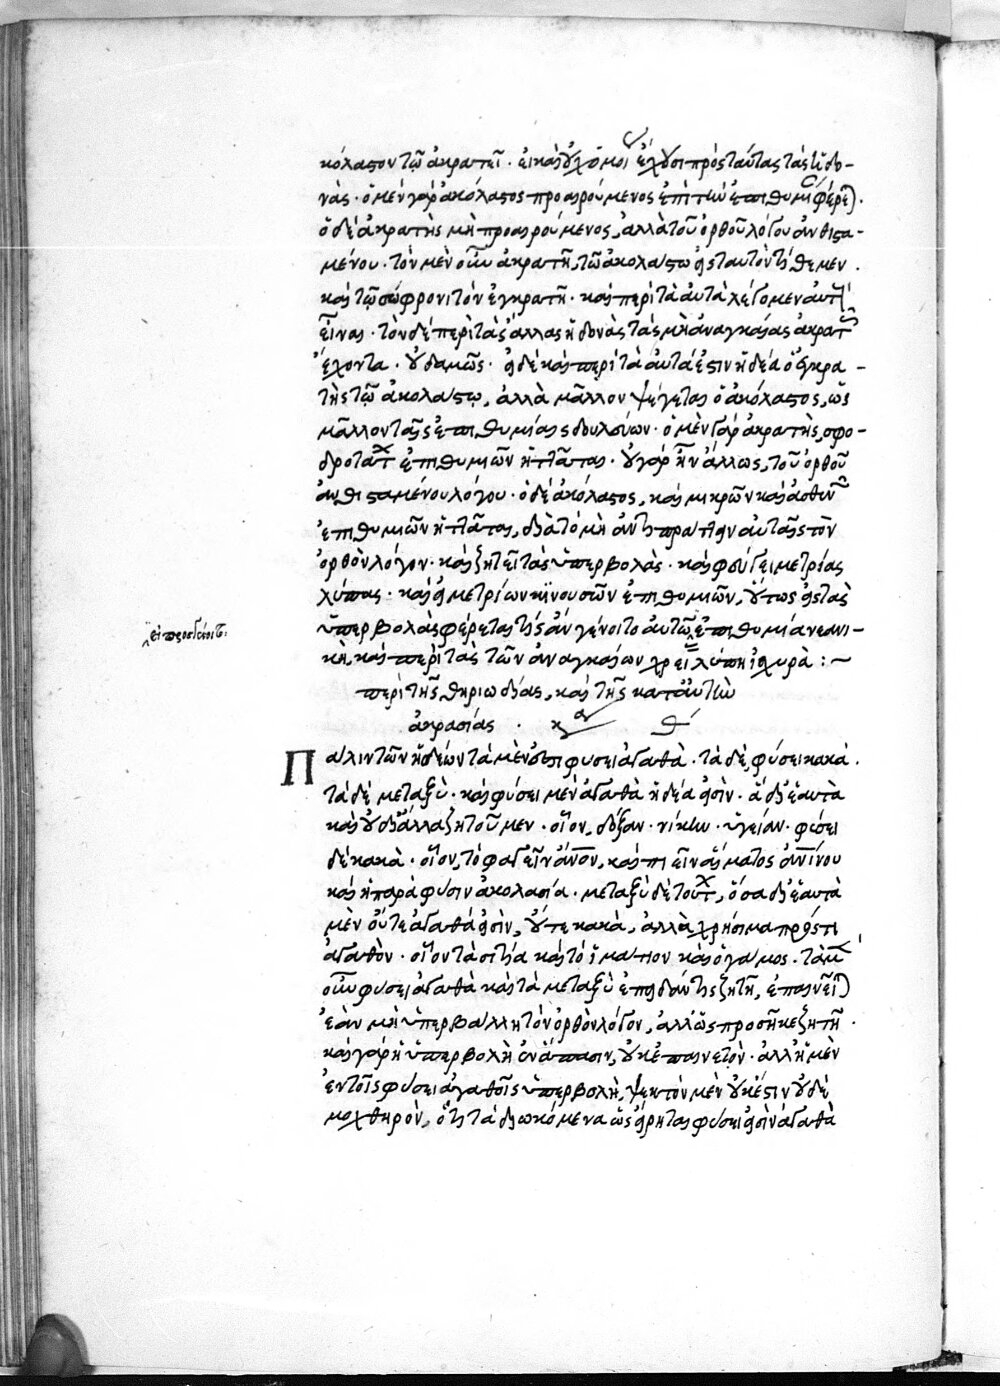 κόλαστον τῷ ἀκρατεῖ· εἰ καὶ οὐχ ὅμοι ἔχουσι πρὸς ταύτας τὰς ἡδο-
νάς· ὁ μὲν γὰρ ἀκόλαστος προαιρούμενος ἐπὶ τὴν ἐπιθυμί φέρε.
ὁ δὲ ἀκρατὴς μὴ προαιρούμενος, ἀλλὰ τοῦ ὀρθοῦ λόγου ἀνθιστα-
μένου· τὸν μὲν οὖν ἀκρατῆ, τῷ ἀκολάστῳ εἰς ταυτὸν τίθεμεν.
καὶ τῷ σώφρονι τὸν ἐγκρατῆ· καὶ περὶ τὰ αὐτὰ λέγομεν αὐτ
εἶναι· τὸν δὲ περὶ τὰς ἄλλας ἡδονὰς τὰς μὴ ἀναγκαίας ἀκρατ
ἔχοντα· οὐδαμῶς· εἰ δὲ καὶ περὶ τὰ αὐτά ἐστιν ἡδέα ὁ ἐγκρα-
τὴς τῷ ἀκολάστῳ, ἀλλὰ μᾶλλον ψέγεται ὁ ἀκόλαστος, ὡς
μᾶλλον ταῖς ἐπιθυμίαις δουλεύων· ὁ μὲν γὰρ ἀκρατὴς, σφο-
δροτάτ ἐπιθυμιῶν ἡττᾶται· οὐ γὰρ ἦν ἄλλως, τοῦ ὀρθοῦ
ἀνθισταμένου λόγου· ὁ δὲ ἀκόλαστος, καὶ μικρῶν καὶ ἀσθεν
ἐπιθυμιῶν ἡττᾶται, διὰ τὸ μὴ ἀντιπράττειν αὐταῖς τὸν
ὀρθὸν λόγον· καὶ ζητεῖ τὰς ὑπερβολάς· καὶ φεύγει μετρίας
λύπας· καὶ εἰ μετρίων κινουσῶν ἐπιθυμιῶν, οὕτως εἰς τὰς
ὑπερβολὰς φέρεται τίς ἂν γένοιτο αὐτῷ, ἐπιθυμία νεανι-
κὴ, καὶ περὶ τὰς τῶν ἀναγκαίων χρεί λύπη ἰσχυρά :~
περὶ τῆς θηριωδίας, καὶ τῆς κατ αὐτὴν
ἀκρασίας.
Πάλιν τῶν ἡδέων τὰ μὲν ἐστι φύσει ἀγαθά· τὰ δὲ, φύσει κακά.
τὰ δὲ μεταξύ· καὶ φύσει μὲν ἀγαθὰ ἡδέα εἰσὶν· ἃ δι' ἑαυτὰ
καὶ οὐ δι' ἄλλα ζητοῦμεν· οἷον, δόξαν· νίκην· ὑγείαν· φύσει
δὲ κακὰ· οἷον, τὸ φαγεῖν ἄνον, καὶ πιεῖν αἵματος ἀνίνου
καὶ ἡ παρὰ φύσιν ἀκολασία· μεταξὺ δὲ τούτ, ὅσα δι' ἑαυτὰ
μὲν οὔτε ἀγαθά εἰσὶν, οὔτε κακὰ, ἀλλὰ χρήσιμα πρός τι
ἀγαθὸν· οἷον τὰ σιτία καὶ τὸ ἱμάτιον καὶ ὁ γάμος· τὰ μ
οὖν φύσει ἀγαθὰ καὶ τὰ μεταξὺ ἐπειδάν τις ζητῇ, ἐπαινεῖ
ἐὰν μὴ ὑπερβάλλη τὸν ὀρθὸν λόγον, ἀλλ' ὡς προσῆκε ζητῇ.
καὶ γὰρ ἡ ὑπερβολὴ ἐν ἅπασιν, οὐκ ἐπαινετὸν· ἀλλ' ἡ μὲν
ἐν τοῖς φύσει ἀγαθοῖς ὑπερβολὴ, ψεκτὸν μὲν οὐκ ἔστιν οὐδὲ
μοχθηρὸν, ὅτι τὰ διωκόμενα ὡς εἴρηται φύσει εἰσὶν ἀγαθὰ